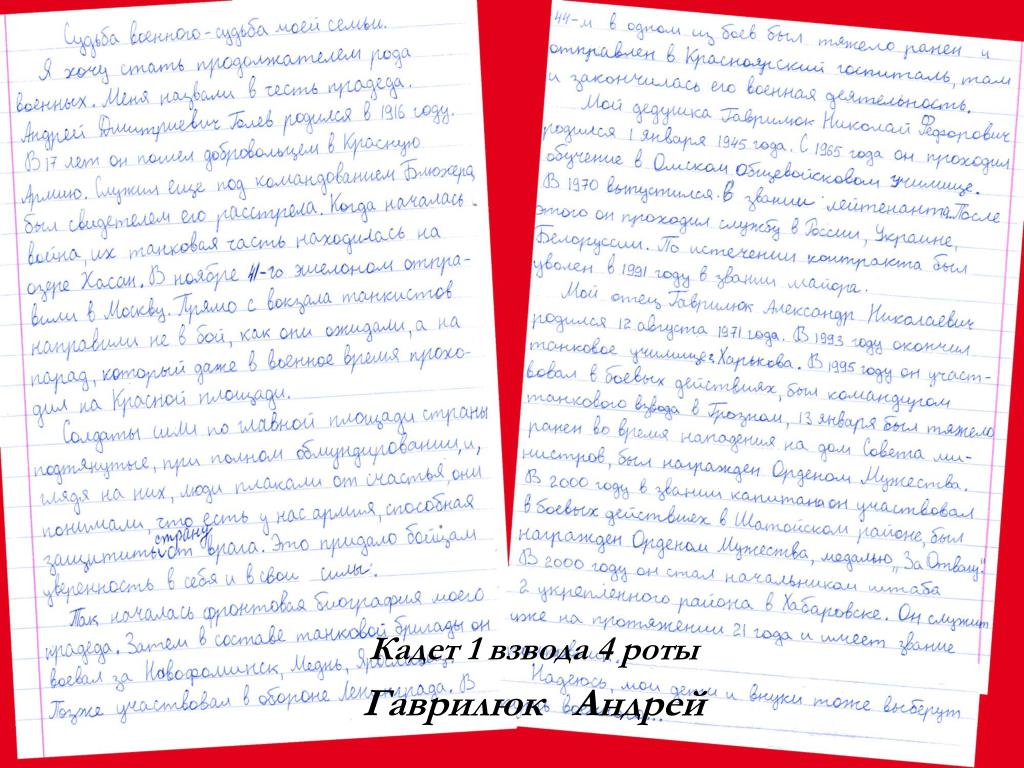 Судьба военного-судьба моей семьи.
Я хочу стать продолжателем рода
военных. Меня назвали в честь прадеда.
Андрей Дмитриевич Голев родился в 1916 году.
В 17 лет он пошел добровольцем в Красную
Армию. Служил еще под командованием Блюхера,
был свидетелем его расстрела. Когда началась
война, их танковая часть находилась на
озере Хасан. В ноябре 41-го эшелоном отпра-
вили в Москву. Прямо с вокзала танкистов
направили не в бой, как они ожидали, а на
парад, который даже в военное время прохо-
дил на Красной площади.
Солдаты шли по главной площади страны
подтянутые, при полном обмундировании, и,
глядя на них, люди плакали от счастья, они
понимали, что есть у нас армия, способная
защитить страну от врага. Это придало бойцам
уверенность в себя и в свои силы.
Так началась фронтовая биография моего
прадеда. Затем в составе танковой бригады он
воевал за Новофоминск, Меднь,
Позже участвовал в обороне Ленинграда. В
44-м в одном из боев был тяжело ранен и
отправлен в Красноярский госпиталь, там
и закончилась его военная деятельность.
Мой дедушка Гаврилюк Николай Федорович
родился 1 января 1945 года. С 1965 года он проходил
обучение в Омском Общевойсковом училище.
В 1970 выпустился в звании лейтенанта. После
этого он проходил службу в России, Украине,
Белоруссии. По истечении контракта был
уволен в 1991 году в звании майора.
Мой отец Гаврилюк Александр Николаевич
родился 12 августа 1971 года. В 1993 году окончил
танковое училище г. Харькова. В 1995 году он участ-
вовал в боевых действиях, был командиром
танкового взвода в Грозном, 13 января был тяжело
ранен во время нападения на дом Совета ми-
нистров, был награжден Орденом Мужества.
В 2000 году в звании капитана он участвовал
в боевых действиях в Шатойском районе, был
награжден Орденом Мужества, медалью „За Отвагу“.
В 2000 году он стал начальником штаба
2 укрепленного района в Хабаровске. Он служит
уже на протяжении 21 года и имеет звание
Надеюсь, мои дети и внуки тоже выберут
Кадет 1 взвода 4 роты
Гаврилюк Андрей